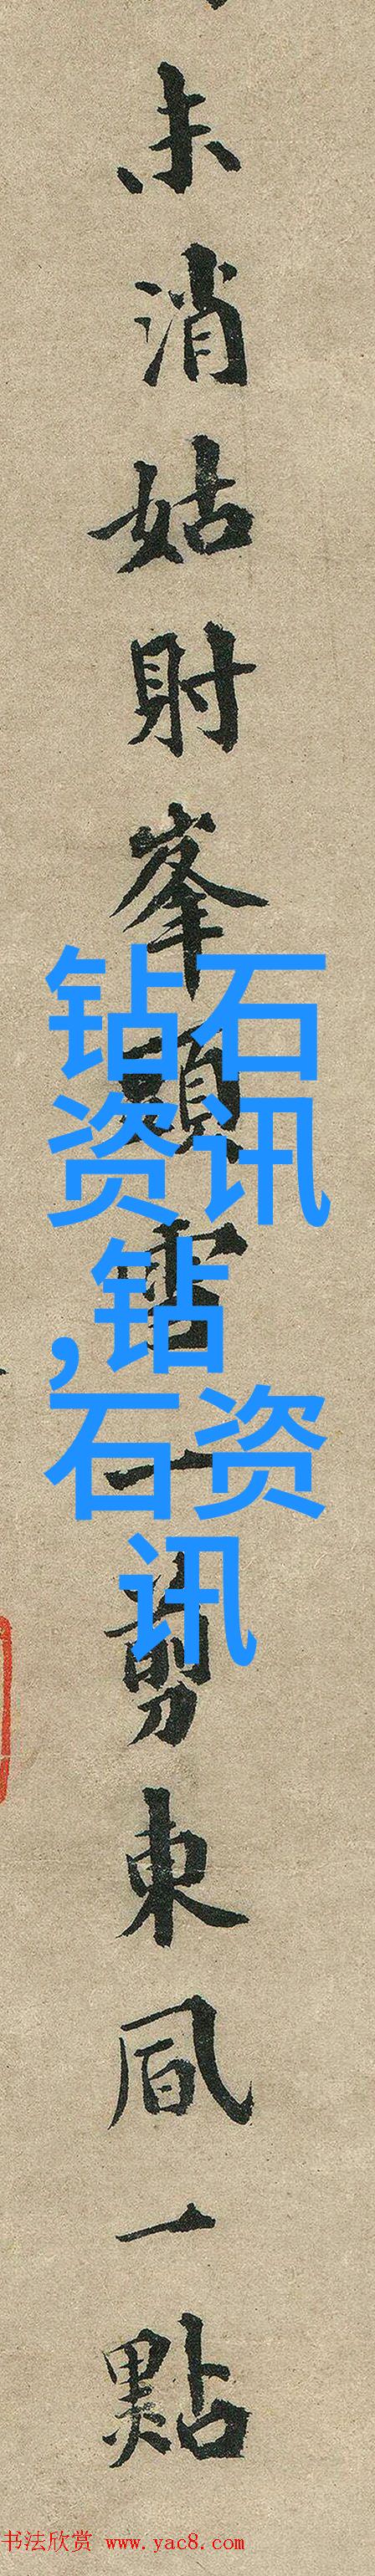 未消姑射峯頭雪一剪東風一點
钻石
资讯
,钻
石资
讯
书法欣赏 www.yac8.com